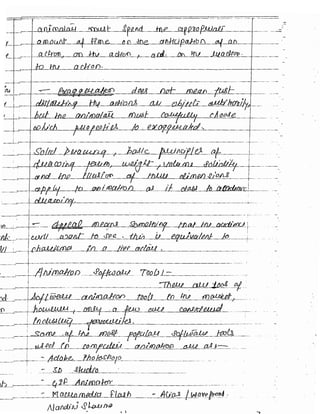 animators must spend the appropriate
amount of time on the anticipation of an
action, on the action, and on the reaction
to the action.
- Exaggeration does not mean just
distorting the actions or objects
but the animators must carefully choose
which properties to exaggerated.
Solid Drawing, basic principles of
drawing form, weight, volume solidity
and the illusion of three dimensions
apply to animation as it does to
drawing.
- Appeal means something that the audience
will want to see. this is equivalent to
charisma in a live actor.
Animation Software Tools :-
There are tools of
software animation tools in the market,
however, only a few are considered
industry favourites.
Some of the most popular software tools
used in computer animation are as :-
- Adobe Photoshop
- 3D Studio
- GIF Animator
- Macromedia Flash - Alias / Wavefront